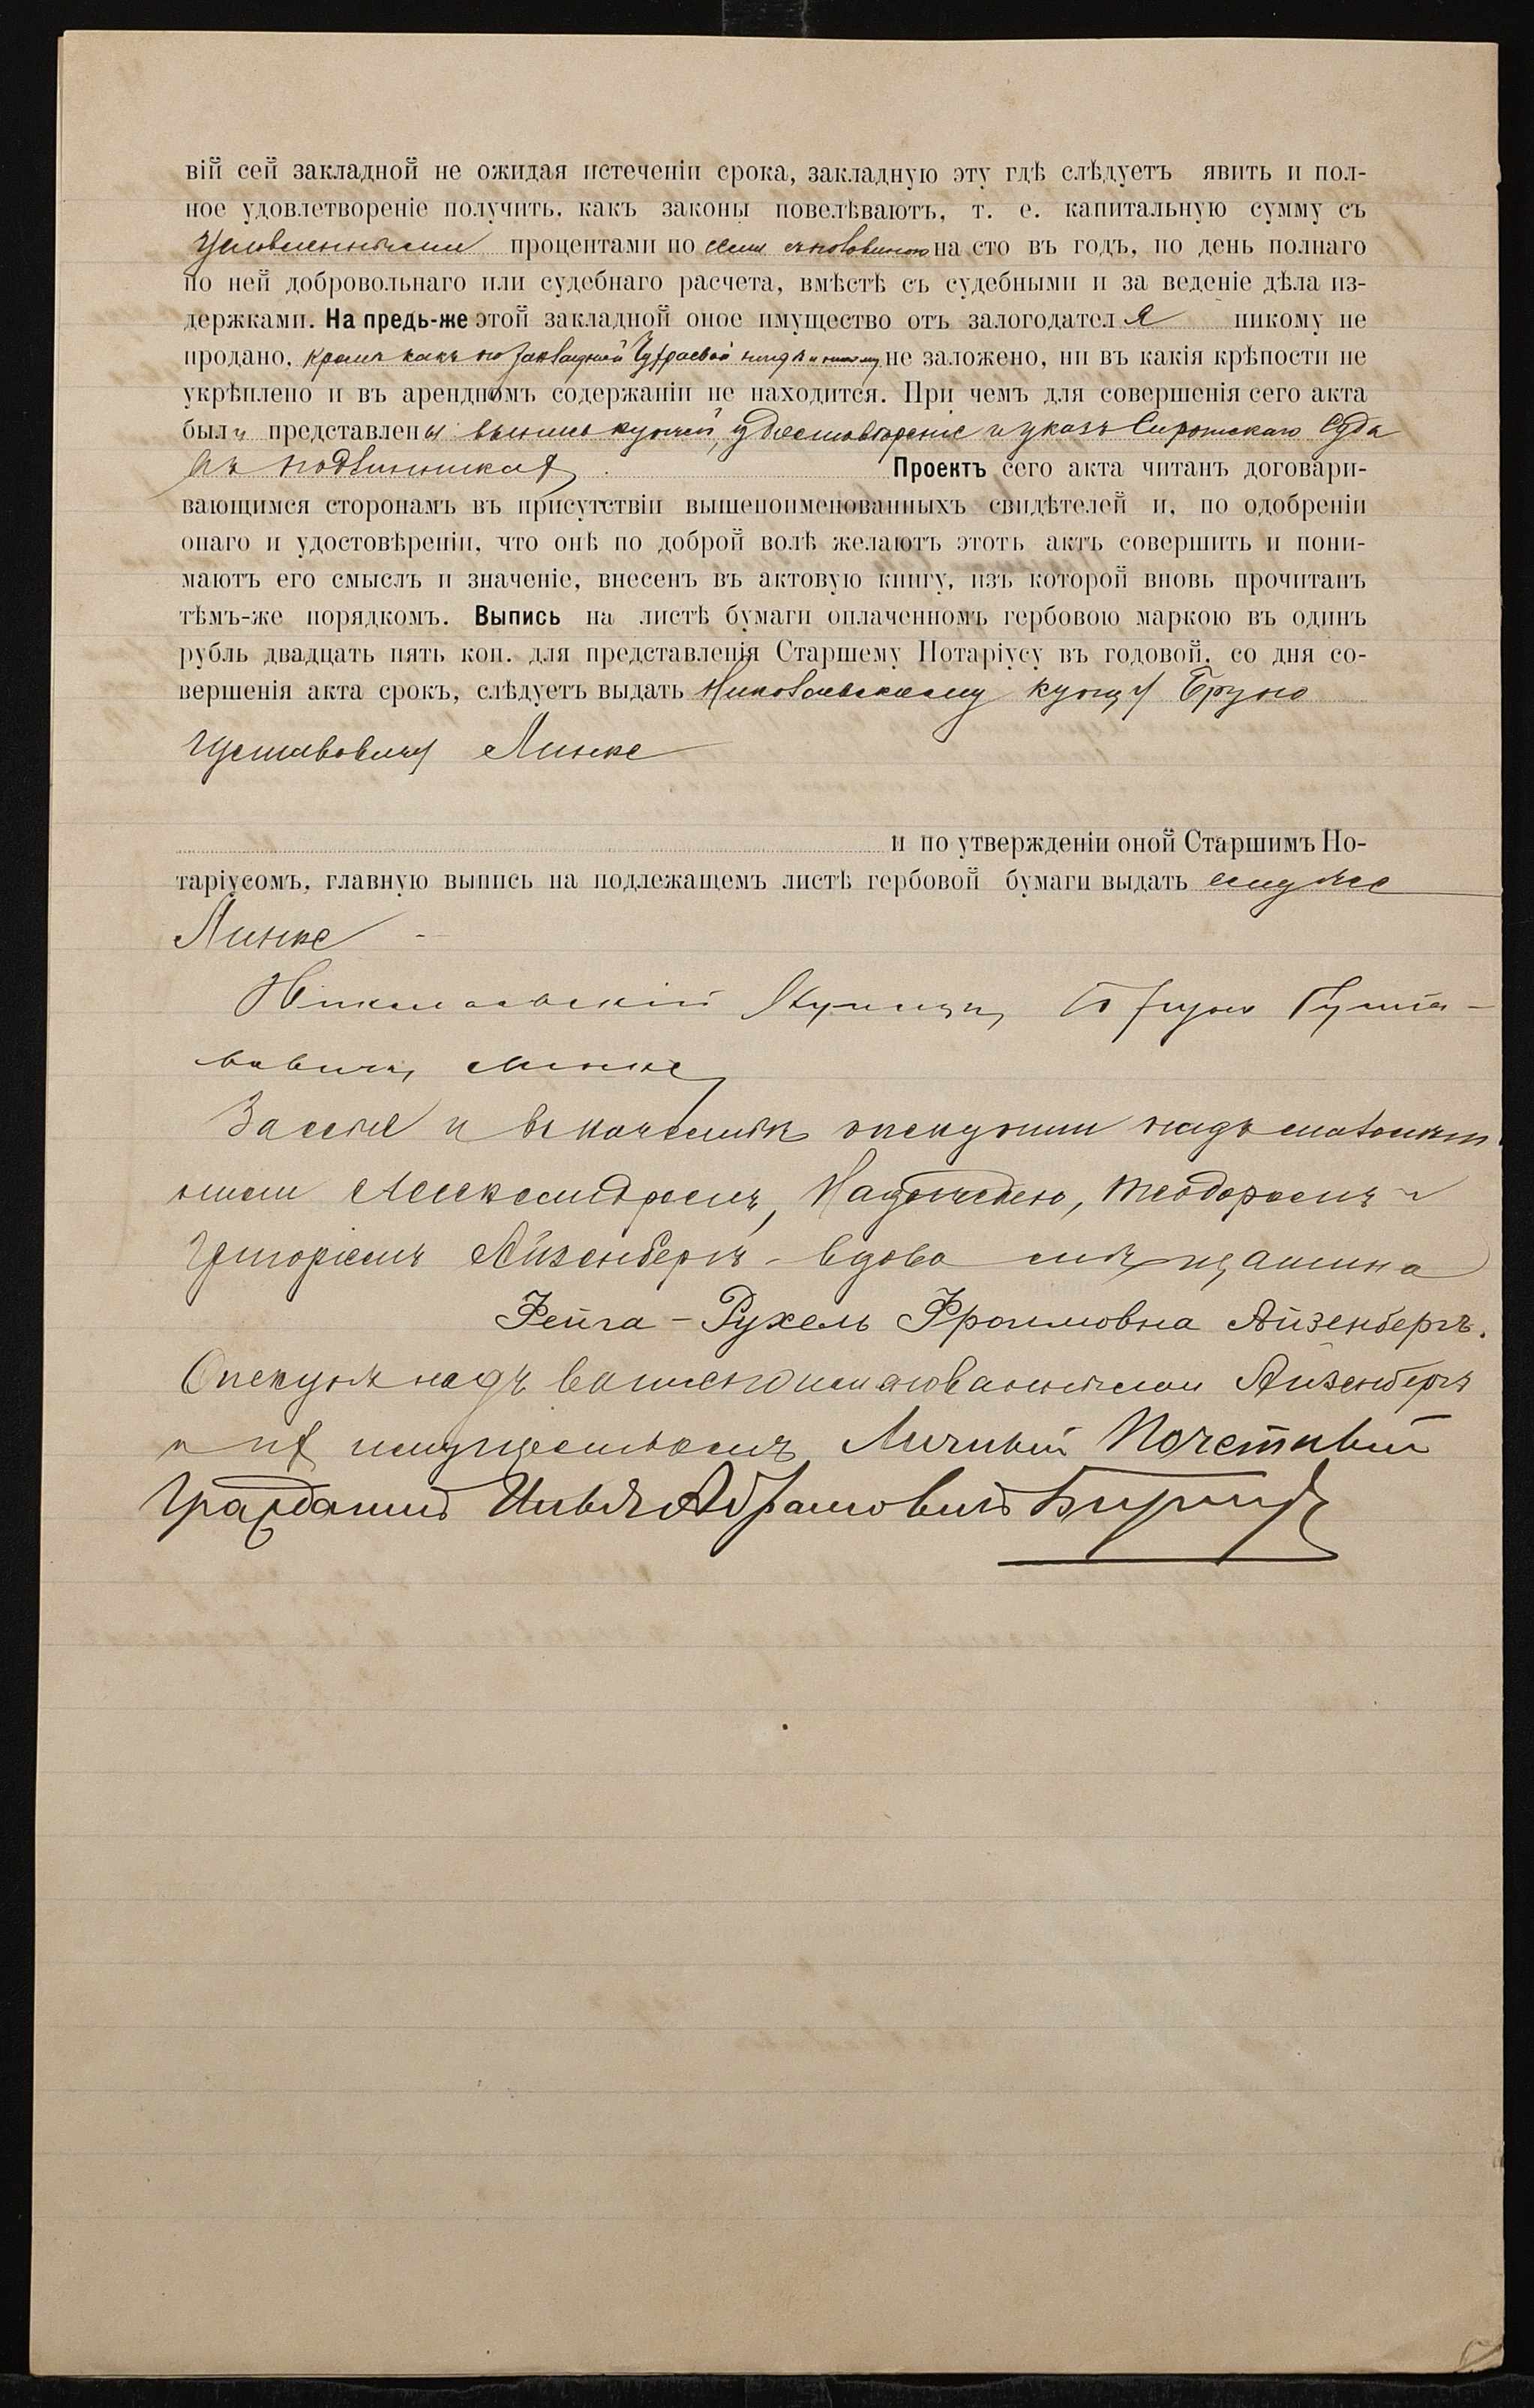 вій сей закладной не ожидая истеченіи срока, закладную эту гдѣ слѣдуетъ явить и пол-
ное удовлетвореніе получить, какъ законы повелѣваютъ, т. е. капитальную сумму съ
условленными процентами по семи съ половиною на сто въ годъ, по день полнаго
по ней добровольнаго или судебнаго расчета, вмѣстѣ съ судебными и за веденіе дѣла из-
держками. На предь-же этой закладной оное имущество отъ залогодателя никому не
продано, кромѣ какъ по закладной никому не заложено, ни въ какія крѣпости не
укрѣплено и въ арендномъ содержаніи не находится. При чемъ для совершенія сего акта
были представлены выпись купчей, удостовѣреніе и указъ Сиротскаго Суда
въ подлинниках.
Проектъ сего акта читанъ договари-
вающимся сторонамъ въ присутствіи вышепоименованныхъ свидѣтелей и, по одобреніи
онаго и удостовѣреніи, что онѣ по доброй волѣ желаютъ этотъ актъ совершить и пони-
маютъ его смыслъ и значеніе, внесенъ въ актовую книгу, изъ которой вновь прочитанъ
тѣмъ-же порядкомъ. Выпись на листѣ бумаги оплаченномъ гербовою маркою въ одинъ
рубль двадцать пять коп. для представленія Старшему Нотаріусу въ годовой, со дня со-
вершенія акта срокъ, слѣдуетъ выдать Николаевскому купцу Бруно
Густавовичу Линке
и по утвержденіи оной Старшимъ Но-
таріусомъ, главную выпись на подлежащемъ листѣ гербовой бумаги выдать ему же
Линке -
Николаевскій Купецъ Бруно Густа-
вовичъ Линке
За себя и въ качествѣ опекунши надъ малолѣт-
ними Александромъ, Надеждою, Теодоромъ и
Григоріемъ Айзенбергъ - вдова мѣщанина
Фейга - Рухель Фроимовна Айзенбергъ.
Опекунъ надъ вышепоименованными Айзенбергъ
и их имуществомъ Личный Почетный
Гражданинъ Илья Абрамовичъ